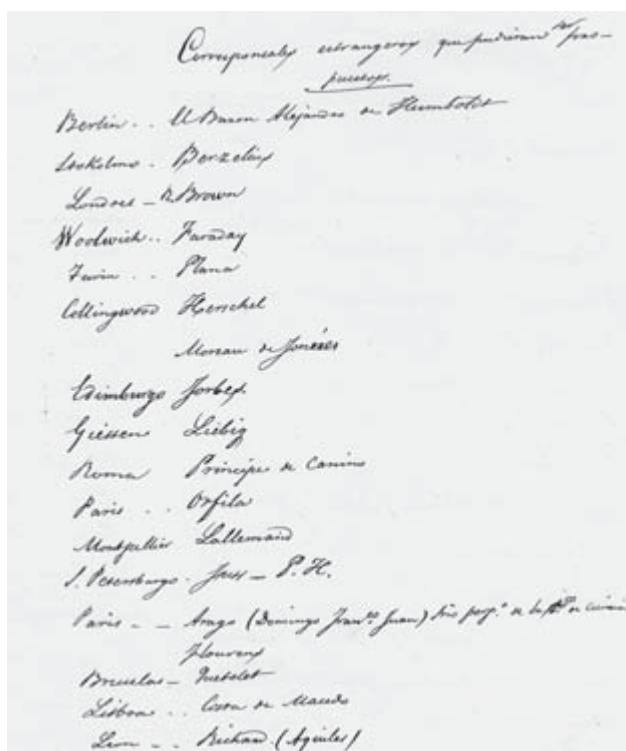 Corresponsales estrangeros que pudieran ser pro-
puestos.
Berlin .. El Baron Alejandro de Humboldt
Stokolmo . Berzelius
Londres – R Brown
Woolwich .. Faraday
Turin .. Plana
Collingwood Herschel
Moreau de Jonnés
Edimburgo Forbes.
Giessen Liebig
Roma Principe de Canino
Paris .. Orfila
Montpellier Lallemand
S. Petersburgo . Fuss – P. H.
Paris – – Arago (Domingo Franco Juan) Srio perp.o de la de ciencias
Flourens
Bruselas – Quetelet
Lisboa .. Costa de Macedo
Leon .. Richard (Aquiles)